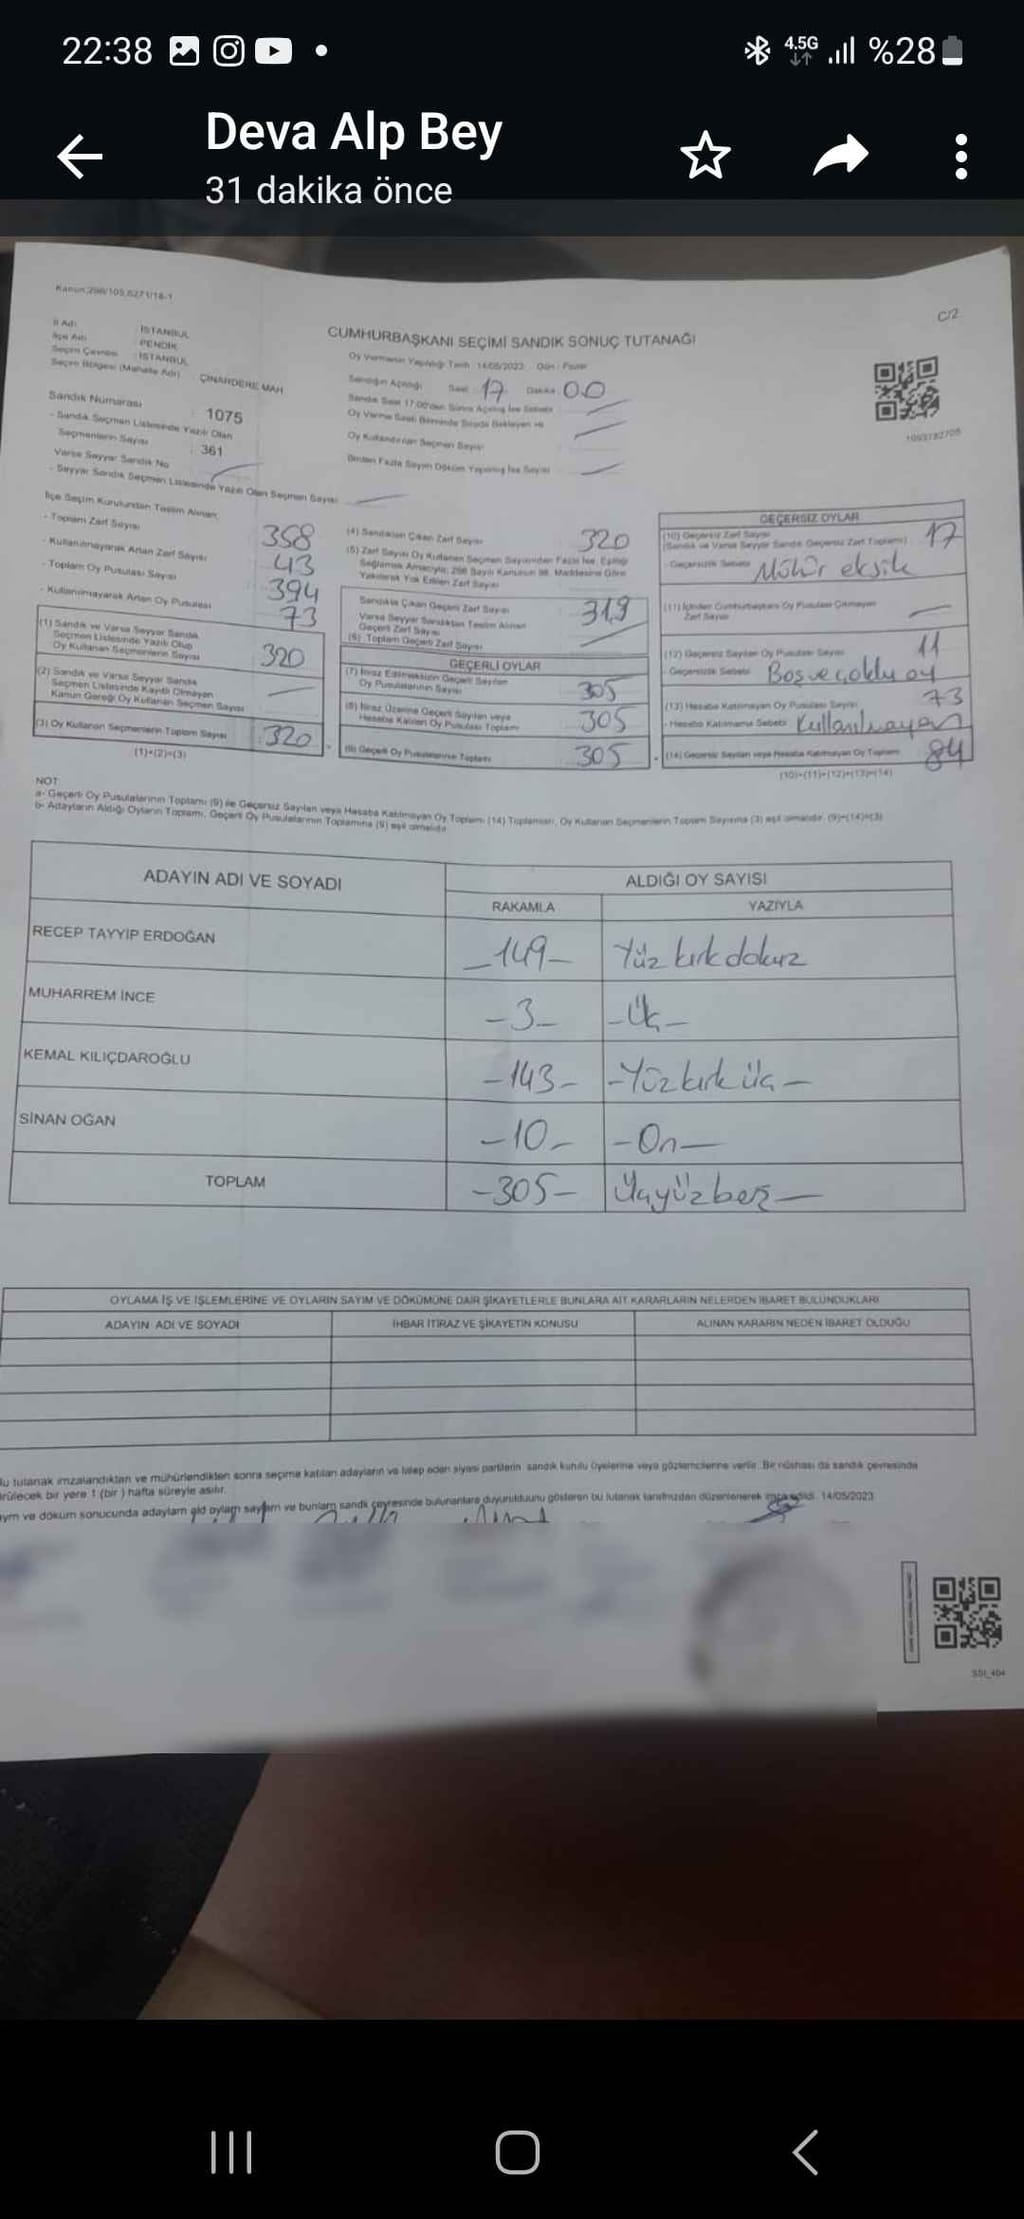 22:38
4.5G %28
Deva Alp Bey
31 dakika önce
Kanun:298/105,6271/18-1
C/2
İl Adı İSTANBUL
İlçe Adı PENDİK
Seçim Çevresi İSTANBUL
Seçim Bölgesi (Mahalle Adı) ÇINARDERE MAH
Sandık Numarası 1075
- Sandık Seçmen Listesinde Yazılı Olan
Seçmenlerin Sayısı 361
Varsa Seyyar Sandık No
- Seyyar Sandık Seçmen Listesinde Yazılı Olan Seçmen Sayısı
CUMHURBAŞKANI SEÇİMİ SANDIK SONUÇ TUTANAĞI
Oy Vermenin Yapıldığı Tarih 14/05/2023 Gün: Pazar
Sandığın Açıldığı Saat 17 Dakika 00
Sandık Saat 17:00'den Sonra Açılmış İse Sebebi
Oy Verme Saati Bitiminde Sırada Bekleyen ve
Oy Kullandırılan Seçmen Sayısı
Birden Fazla Sayım Döküm Yapılmış İse Sayısı
İlçe Seçim Kurulundan Teslim Alınan;
- Toplam Zarf Sayısı 358
- Kullanılmayarak Artan Zarf Sayısı 43
- Toplam Oy Pusulası Sayısı 394
- Kullanılmayarak Artan Oy Pusulası 73
(1) Sandık ve Varsa Seyyar Sandık
Seçmen Listesinde Yazılı Olup
Oy Kullanan Seçmenlerin Sayısı 320
(2) Sandık ve Varsa Seyyar Sandık
Seçmen Listesinde Kayıtlı Olmayan
Kanun Gereği Oy Kullanan Seçmen Sayısı
(3) Oy Kullanan Seçmenlerin Toplam Sayısı 320
(1)+(2)=(3)
(4) Sandıktan Çıkan Zarf Sayısı 320
(5) Zarf Sayısı Oy Kullanan Seçmen Sayısından Fazla İse, Eşitliği
Sağlamak Amacıyla; 298 Sayılı Kanunun 98. Maddesine Göre
Yakılarak Yok Edilen Zarf Sayısı
Sandıkta Çıkan Geçerli Zarf Sayısı 319
Varsa Seyyar Sandıktan Teslim Alınan
Geçerli Zarf Sayısı
(6) Toplam Geçerli Zarf Sayısı
GEÇERLİ OYLAR
(7) İtiraz Edilmeksizin Geçerli Sayılan
Oy Pusulalarının Sayısı 305
(8) İtiraz Üzerine Geçerli Sayılan veya
Hesaba Katılan Oy Pusulası Toplamı 305
(9) Geçerli Oy Pusulalarının Toplamı 305
GEÇERSİZ OYLAR
(10) Geçersiz Zarf Sayısı
(Sandık ve Varsa Seyyar Sandık Geçersiz Zarf Toplamı) 17
- Geçersizlik Sebebi Mühür eksik
(11) İçinden Cumhurbaşkanı Oy Pusulası Çıkmayan
Zarf Sayısı
(12) Geçersiz Sayılan Oy Pusulası Sayısı 11
- Geçersizlik Sebebi Boş ve çoklu oy
(13) Hesaba Katılmayan Oy Pusulası Sayısı 73
- Hesaba Katılmama Sebebi Kullanılmayan
(14) Geçersiz Sayılan veya Hesaba Katılmayan Oy Toplamı 84
(10)+(11)+(12)+(13)=(14)
NOT
a- Geçerli Oy Pusulalarının Toplamı (9) ile Geçersiz Sayılan veya Hesaba Katılmayan Oy Toplamı (14) Toplamları, Oy Kullanan Seçmenlerin Toplam Sayısına (3) eşit olmalıdır. (9)+(14)=(3)
b- Adayların Aldığı Oyların Toplamı, Geçerli Oy Pusulalarının Toplamına (9) eşit olmalıdır.
ADAYIN ADI VE SOYADI ALDIĞI OY SAYISI
RAKAMLA YAZIYLA
RECEP TAYYİP ERDOĞAN -149- Yüz kırk dokuz
MUHARREM İNCE -3- -Üç-
KEMAL KILIÇDAROĞLU -143- -Yüz kırk üç-
SİNAN OĞAN -10- -On-
TOPLAM -305- Üçyüzbeş-
OYLAMA İŞ VE İŞLEMLERİNE VE OYLARIN SAYIM VE DÖKÜMÜNE DAİR ŞİKAYETLERLE BUNLARA AİT KARARLARIN NELERDEN İBARET BULUNDUKLARI
ADAYIN ADI VE SOYADI İHBAR İTİRAZ VE ŞİKAYETİN KONUSU ALINAN KARARIN NEDEN İBARET OLDUĞU
Bu tutanak imzalandıktan ve mühürlendikten sonra seçime katılan adayların ve talep eden siyasi partilerin sandık kurulu üyelerine veya gözlemcilerine verilir. Bir nüshası da sandık çevresinde
görülecek bir yere 1 (bir) hafta süreyle asılır.
duyurulduğunu gösteren bu tutanak tarafımızdan düzenlenerek imza edildi. 14/05/2023
SSI_404